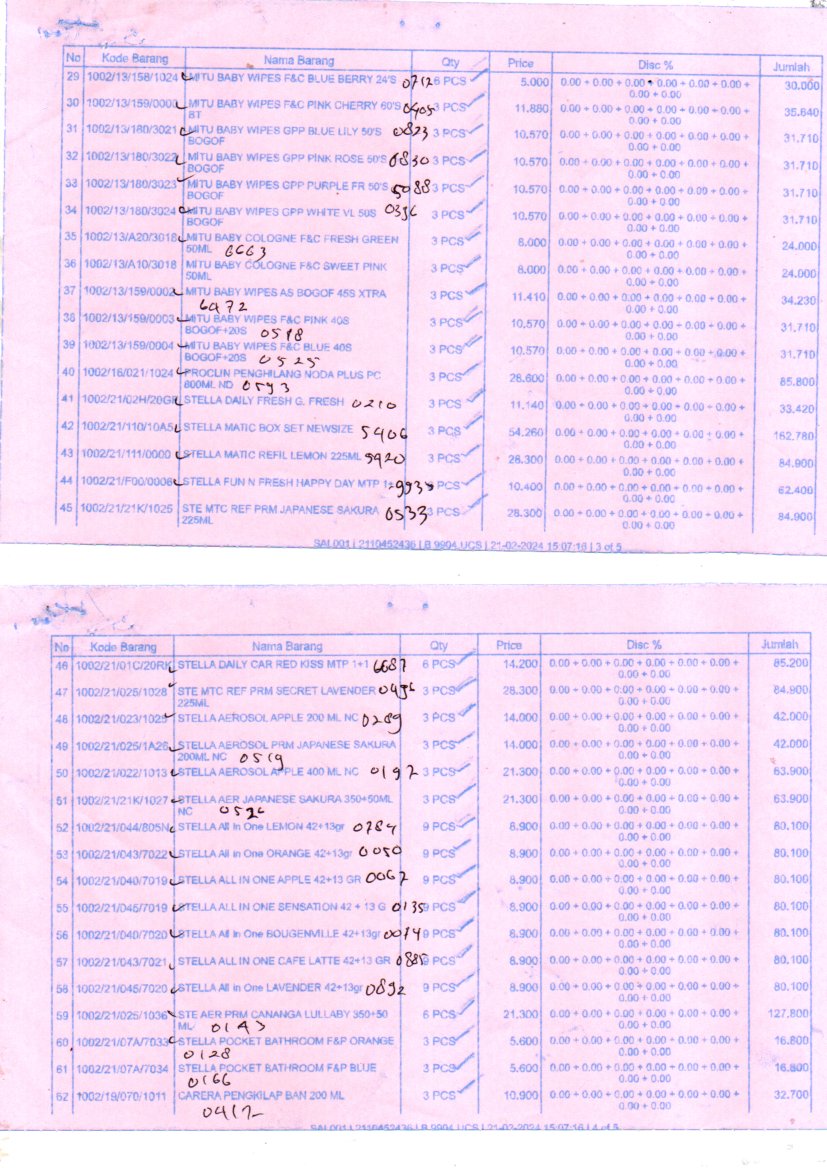 No Kode Barang Nama Barang Qty Price Disc % Jumlah
29 1002/13/158/1024 MITU BABY WIPES F&C BLUE BERRY 24'S 0712 6 PCS 5.000 0.00 + 0.00 + 0.00 + 0.00 + 0.00 + 0.00 + 30.000
0.00 + 0.00
30 1002/13/159/0001 MITU BABY WIPES F&C PINK CHERRY 60'S 0405 3 PCS 11.880 0.00 + 0.00 + 0.00 + 0.00 + 0.00 + 0.00 + 35.640
BT 0.00 + 0.00
31 1002/13/180/3021 MITU BABY WIPES GPP BLUE LILY 50'S 0823 3 PCS 10.570 0.00 + 0.00 + 0.00 + 0.00 + 0.00 + 0.00 + 31.710
BOGOF 0.00 + 0.00
32 1002/13/180/3022 MITU BABY WIPES GPP PINK ROSE 50'S 0830 3 PCS 10.570 0.00 + 0.00 + 0.00 + 0.00 + 0.00 + 0.00 + 31.710
BOGOF 0.00 + 0.00
33 1002/13/180/3023 MITU BABY WIPES GPP PURPLE FR 50'S 5088 3 PCS 10.570 0.00 + 0.00 + 0.00 + 0.00 + 0.00 + 0.00 + 31.710
BOGOF 0.00 + 0.00
34 1002/13/180/3024 MITU BABY WIPES GPP WHITE VL 50S 0336 3 PCS 10.570 0.00 + 0.00 + 0.00 + 0.00 + 0.00 + 0.00 + 31.710
BOGOF 0.00 + 0.00
35 1002/13/A20/3018 MITU BABY COLOGNE F&C FRESH GREEN 3 PCS 8.000 0.00 + 0.00 + 0.00 + 0.00 + 0.00 + 0.00 + 24.000
50ML 6663 0.00 + 0.00
36 1002/13/A10/3018 MITU BABY COLOGNE F&C SWEET PINK 3 PCS 8.000 0.00 + 0.00 + 0.00 + 0.00 + 0.00 + 0.00 + 24.000
50ML 0.00 + 0.00
37 1002/13/159/0002 MITU BABY WIPES AS BOGOF 45S XTRA 3 PCS 11.410 0.00 + 0.00 + 0.00 + 0.00 + 0.00 + 0.00 + 34.230
6472 0.00 + 0.00
38 1002/13/159/0003 MITU BABY WIPES F&C PINK 40S 3 PCS 10.570 0.00 + 0.00 + 0.00 + 0.00 + 0.00 + 0.00 + 31.710
BOGOF+20S 0518 0.00 + 0.00
39 1002/13/159/0004 MITU BABY WIPES F&C BLUE 40S 3 PCS 10.570 0.00 + 0.00 + 0.00 + 0.00 + 0.00 + 0.00 + 31.710
BOGOF+20S 0525 0.00 + 0.00
40 1002/16/021/1024 PROCLIN PENGHILANG NODA PLUS PC 3 PCS 28.600 0.00 + 0.00 + 0.00 + 0.00 + 0.00 + 0.00 + 85.800
800ML ND 0593 0.00 + 0.00
41 1002/21/02H/20GR STELLA DAILY FRESH G. FRESH 0210 3 PCS 11.140 0.00 + 0.00 + 0.00 + 0.00 + 0.00 + 0.00 + 33.420
0.00 + 0.00
42 1002/21/110/10A5 STELLA MATIC BOX SET NEWSIZE 5406 3 PCS 54.260 0.00 + 0.00 + 0.00 + 0.00 + 0.00 + 0.00 + 162.780
0.00 + 0.00
43 1002/21/111/0000 STELLA MATIC REFIL LEMON 225ML 5420 3 PCS 28.300 0.00 + 0.00 + 0.00 + 0.00 + 0.00 + 0.00 + 84.900
0.00 + 0.00
44 1002/21/F00/0006 STELLA FUN N FRESH HAPPY DAY MTP PCS 10.400 0.00 + 0.00 + 0.00 + 0.00 + 0.00 + 0.00 + 62.400
0.00 + 0.00
45 1002/21/21K/1025 STE MTC REF PRM JAPANESE SAKURA 0533 3 PCS 28.300 0.00 + 0.00 + 0.00 + 0.00 + 0.00 + 0.00 + 84.900
225ML 0.00 + 0.00
SAL001 | 2110452436 | B 9904 UCS | 21-02-2024 15:07:16 | 3 of 5
No Kode Barang Nama Barang Qty Price Disc % Jumlah
46 1002/21/01C/20RK STELLA DAILY CAR RED KISS MTP 1+1 6687 6 PCS 14.200 0.00 + 0.00 + 0.00 + 0.00 + 0.00 + 0.00 + 85.200
0.00 + 0.00
47 1002/21/025/1028 STE MTC REF PRM SECRET LAVENDER 0496 3 PCS 28.300 0.00 + 0.00 + 0.00 + 0.00 + 0.00 + 0.00 + 84.900
225ML 0.00 + 0.00
48 1002/21/023/1025 STELLA AEROSOL APPLE 200 ML NC 0289 3 PCS 14.000 0.00 + 0.00 + 0.00 + 0.00 + 0.00 + 0.00 + 42.000
0.00 + 0.00
49 1002/21/025/1A26 STELLA AEROSOL PRM JAPANESE SAKURA 3 PCS 14.000 0.00 + 0.00 + 0.00 + 0.00 + 0.00 + 0.00 + 42.000
200ML NC 0519 0.00 + 0.00
50 1002/21/022/1013 STELLA AEROSOL APPLE 400 ML NC 0197 3 PCS 21.300 0.00 + 0.00 + 0.00 + 0.00 + 0.00 + 0.00 + 63.900
0.00 + 0.00
51 1002/21/21K/1027 STELLA AER JAPANESE SAKURA 350+50ML 3 PCS 21.300 0.00 + 0.00 + 0.00 + 0.00 + 0.00 + 0.00 + 63.900
NC 0526 0.00 + 0.00
52 1002/21/044/805N STELLA All In One LEMON 42+13gr 0784 9 PCS 8.900 0.00 + 0.00 + 0.00 + 0.00 + 0.00 + 0.00 + 80.100
0.00 + 0.00
53 1002/21/043/7022 STELLA All in One ORANGE 42+13gr 0050 9 PCS 8.900 0.00 + 0.00 + 0.00 + 0.00 + 0.00 + 0.00 + 80.100
0.00 + 0.00
54 1002/21/040/7019 STELLA ALL IN ONE APPLE 42+13 GR 0067 9 PCS 8.900 0.00 + 0.00 + 0.00 + 0.00 + 0.00 + 0.00 + 80.100
0.00 + 0.00
55 1002/21/045/7019 STELLA ALL IN ONE SENSATION 42 + 13 G 0135 9 PCS 8.900 0.00 + 0.00 + 0.00 + 0.00 + 0.00 + 0.00 + 80.100
0.00 + 0.00
56 1002/21/040/7020 STELLA All in One BOUGENVILLE 42+13gr 0074 9 PCS 8.900 0.00 + 0.00 + 0.00 + 0.00 + 0.00 + 0.00 + 80.100
0.00 + 0.00
57 1002/21/043/7021 STELLA ALL IN ONE CAFE LATTE 42+13 GR 0885 9 PCS 8.900 0.00 + 0.00 + 0.00 + 0.00 + 0.00 + 0.00 + 80.100
0.00 + 0.00
58 1002/21/045/7020 STELLA All in One LAVENDER 42+13gr 0892 9 PCS 8.900 0.00 + 0.00 + 0.00 + 0.00 + 0.00 + 0.00 + 80.100
0.00 + 0.00
59 1002/21/025/1036 STE AER PRM CANANGA LULLABY 350+50 6 PCS 21.300 0.00 + 0.00 + 0.00 + 0.00 + 0.00 + 0.00 + 127.800
ML 0143 0.00 + 0.00
60 1002/21/07A/7033 STELLA POCKET BATHROOM F&P ORANGE 3 PCS 5.600 0.00 + 0.00 + 0.00 + 0.00 + 0.00 + 0.00 + 16.800
0128 0.00 + 0.00
61 1002/21/07A/7034 STELLA POCKET BATHROOM F&P BLUE 3 PCS 5.600 0.00 + 0.00 + 0.00 + 0.00 + 0.00 + 0.00 + 16.800
0166 0.00 + 0.00
62 1002/19/070/1011 CARERA PENGKILAP BAN 200 ML 3 PCS 10.900 0.00 + 0.00 + 0.00 + 0.00 + 0.00 + 0.00 + 32.700
0412 0.00 + 0.00
SAL001 | 2110452436 | B 9904 UCS | 21-02-2024 15:07:16 | 4 of 5